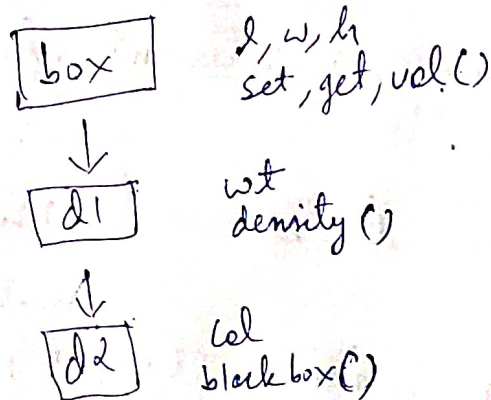 box
l, w, h
set, get, vol()
d1
wt
density()
d2
col
blackbox()